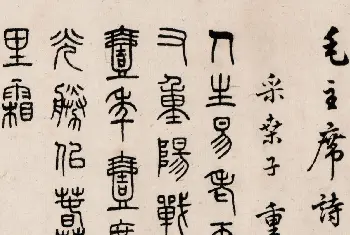 毛主席詩
采桑子 重
人生易老天
又重陽戰
壹年壹度
光勝佀萅
里霜